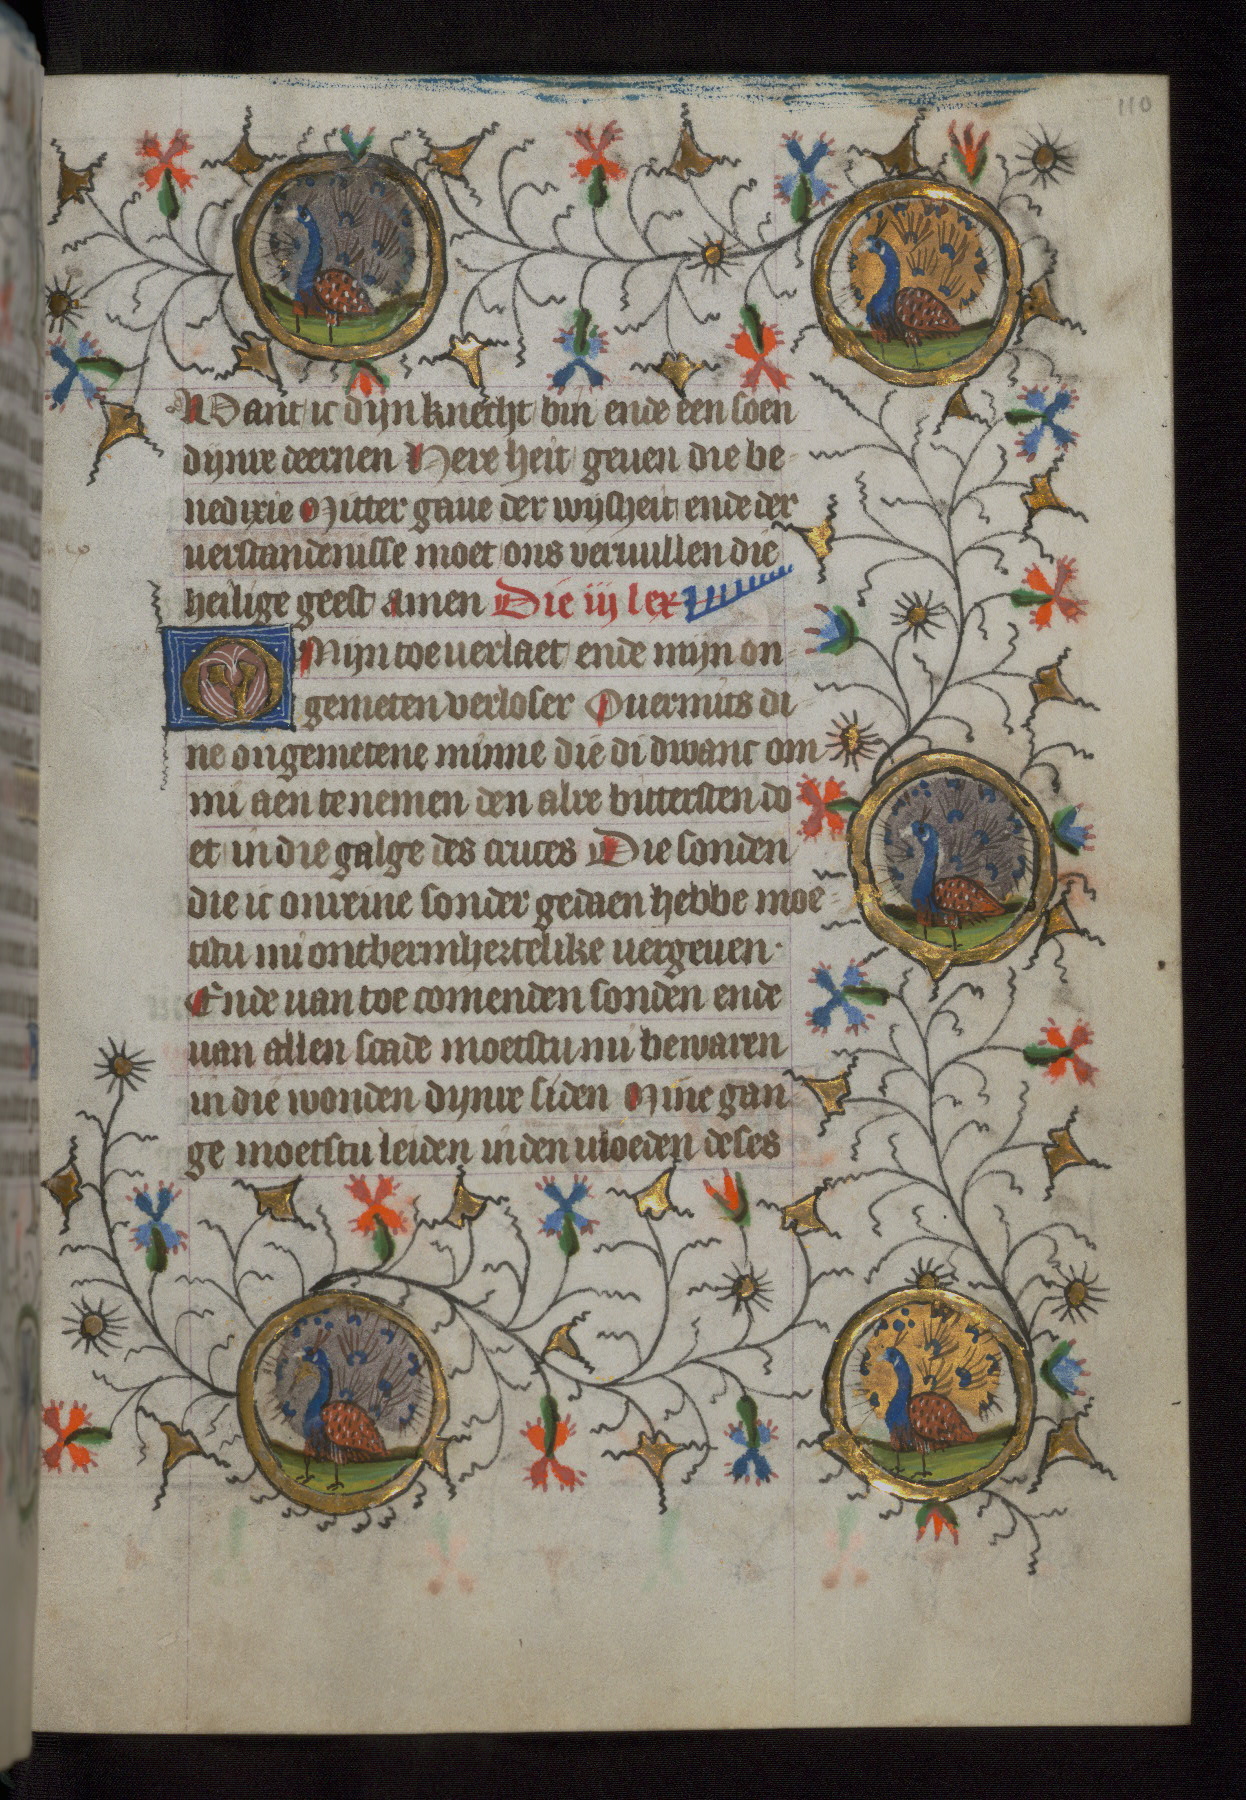 110
Want ic dijn knecht bin ende een soen
dijnre deernen Here heit geuen die be
nedixie Mitter gaue der wijsheit ende der
uerstandenisse moet ons veruullen die
heilige geest amen Die iij lex
O Mijn toeuerlaet ende mijn on
gemeten verloser Ouermits di
ne ongemetene minne die di dwanc om
mi aen te nemen den alre bittersten do
et in die galge des cruces Die sonden
die ic onreine sonder gedaen hebbe moe
tstu mi ontbermhertelike uergeuen·
Ende uan toe comenden sonden ende
uan allen scade moetstu mi bewaren
in die wonden dijnre siden Mine gan
ge moetstu leiden in den uloeden deses